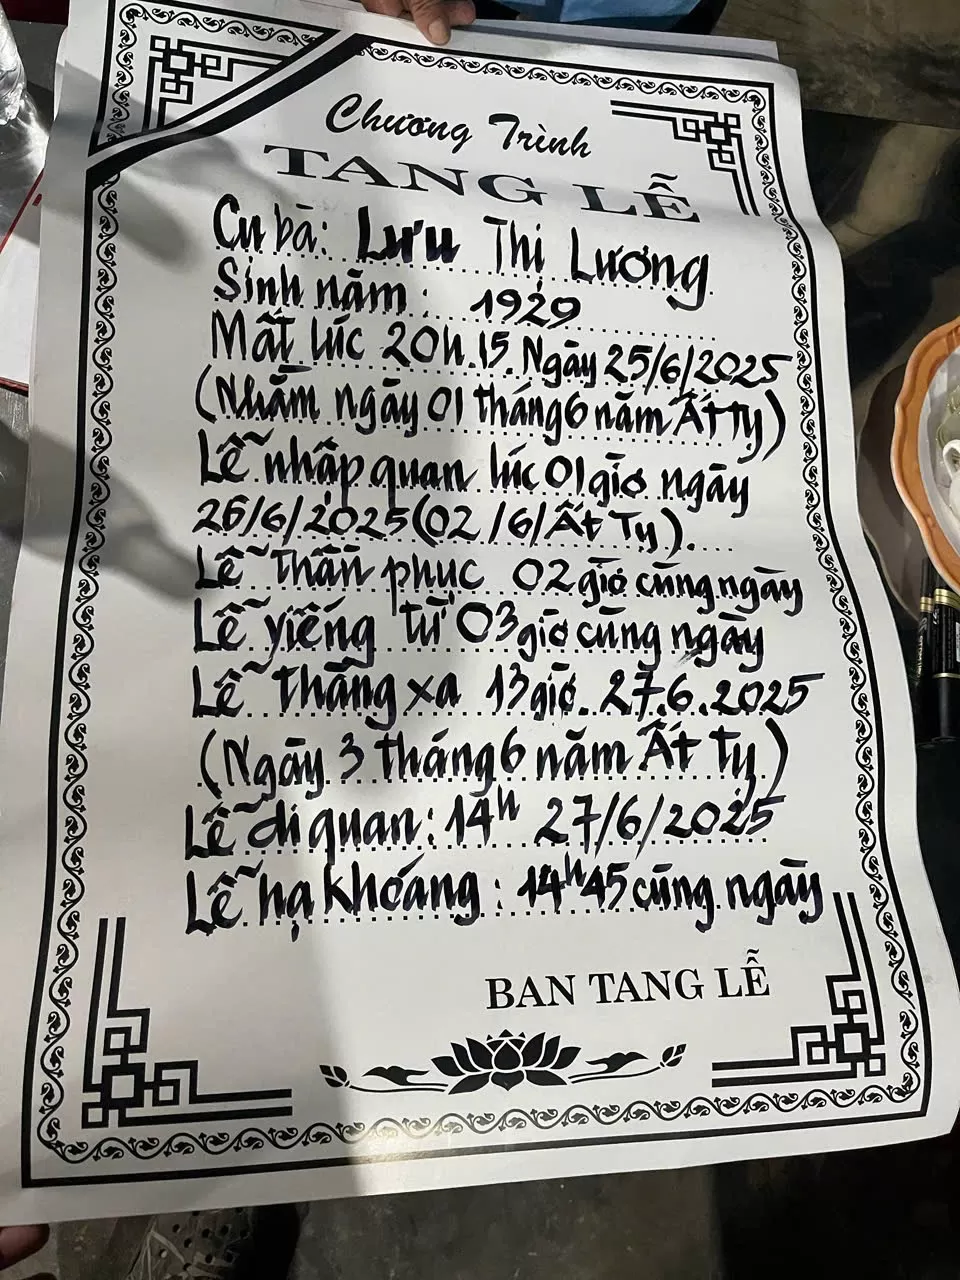 Chương Trình
TANG LỄ
Cụ bà: Lưu Thị Lương
Sinh năm: 1929
Mất lúc 20h.15. Ngày 25/6/2025
(Nhằm ngày 01 tháng 6 năm Ất Tỵ)
Lễ nhập quan lúc 01 giờ ngày
26/6/2025 (02/6/Ất Tỵ).
Lễ thần phục 02 giờ cùng ngày
Lễ viếng từ 03 giờ cùng ngày
Lễ thăng xa 13 giờ. 27.6.2025
(Ngày 3 tháng 6 năm Ất Tỵ)
Lễ di quan: 14h 27/6/2025
Lễ hạ khoáng: 14h45 cùng ngày
BAN TANG LỄ